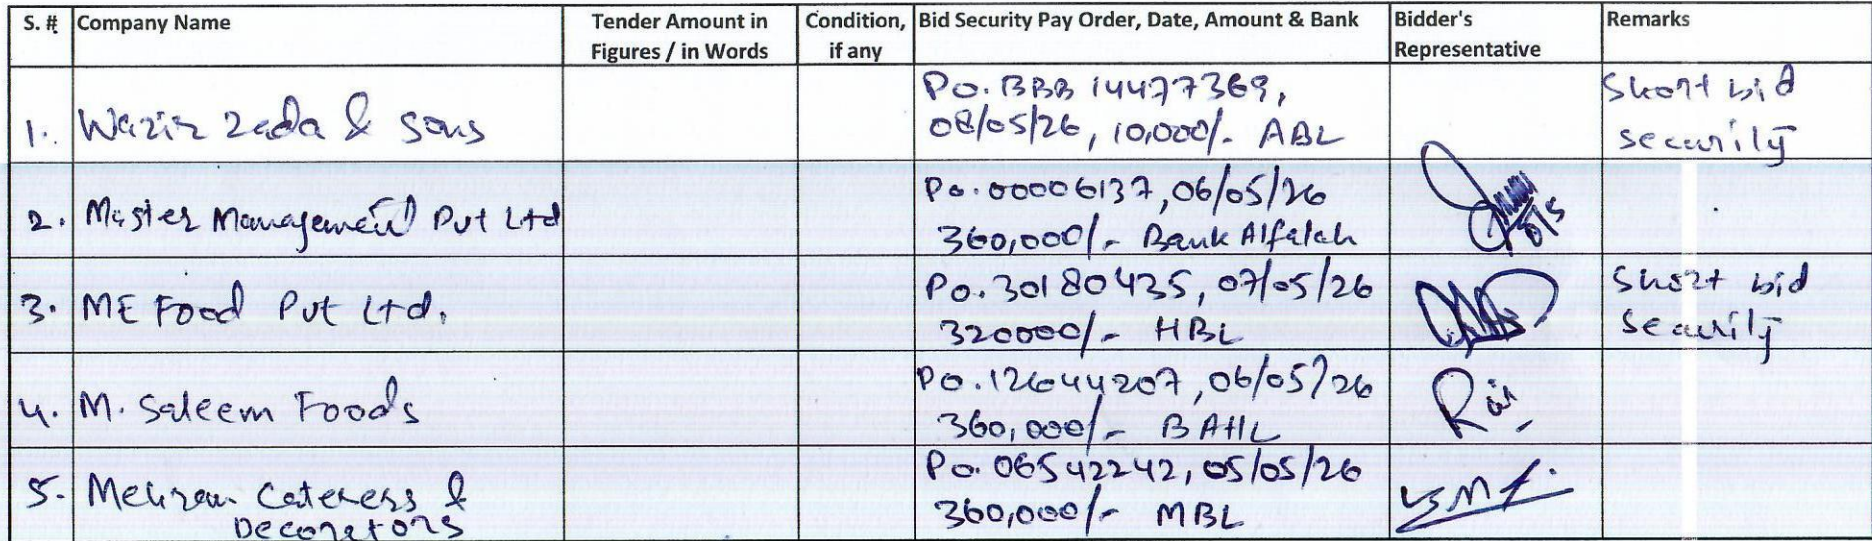 S. # Company Name Tender Amount in Figures / in Words Condition, if any Bid Security Pay Order, Date, Amount & Bank Bidder's Representative Remarks
1. Wazir Zada & Sons Po. BBB 14477369, Short bid
08/05/26, 10,000/- ABL security
2. Master Management Pvt Ltd Po. 00006137, 06/05/26
360,000/- Bank Alfalah
3. ME Food Pvt Ltd. Po. 30180435, 07/05/26 Short bid
320000/- HBL security
4. M. Saleem Foods Po. 12644207, 06/05/26
360,000/- BAHL
5. Mehran Caterers & Po. 06542242, 05/05/26
Decorators 360,000/- MBL